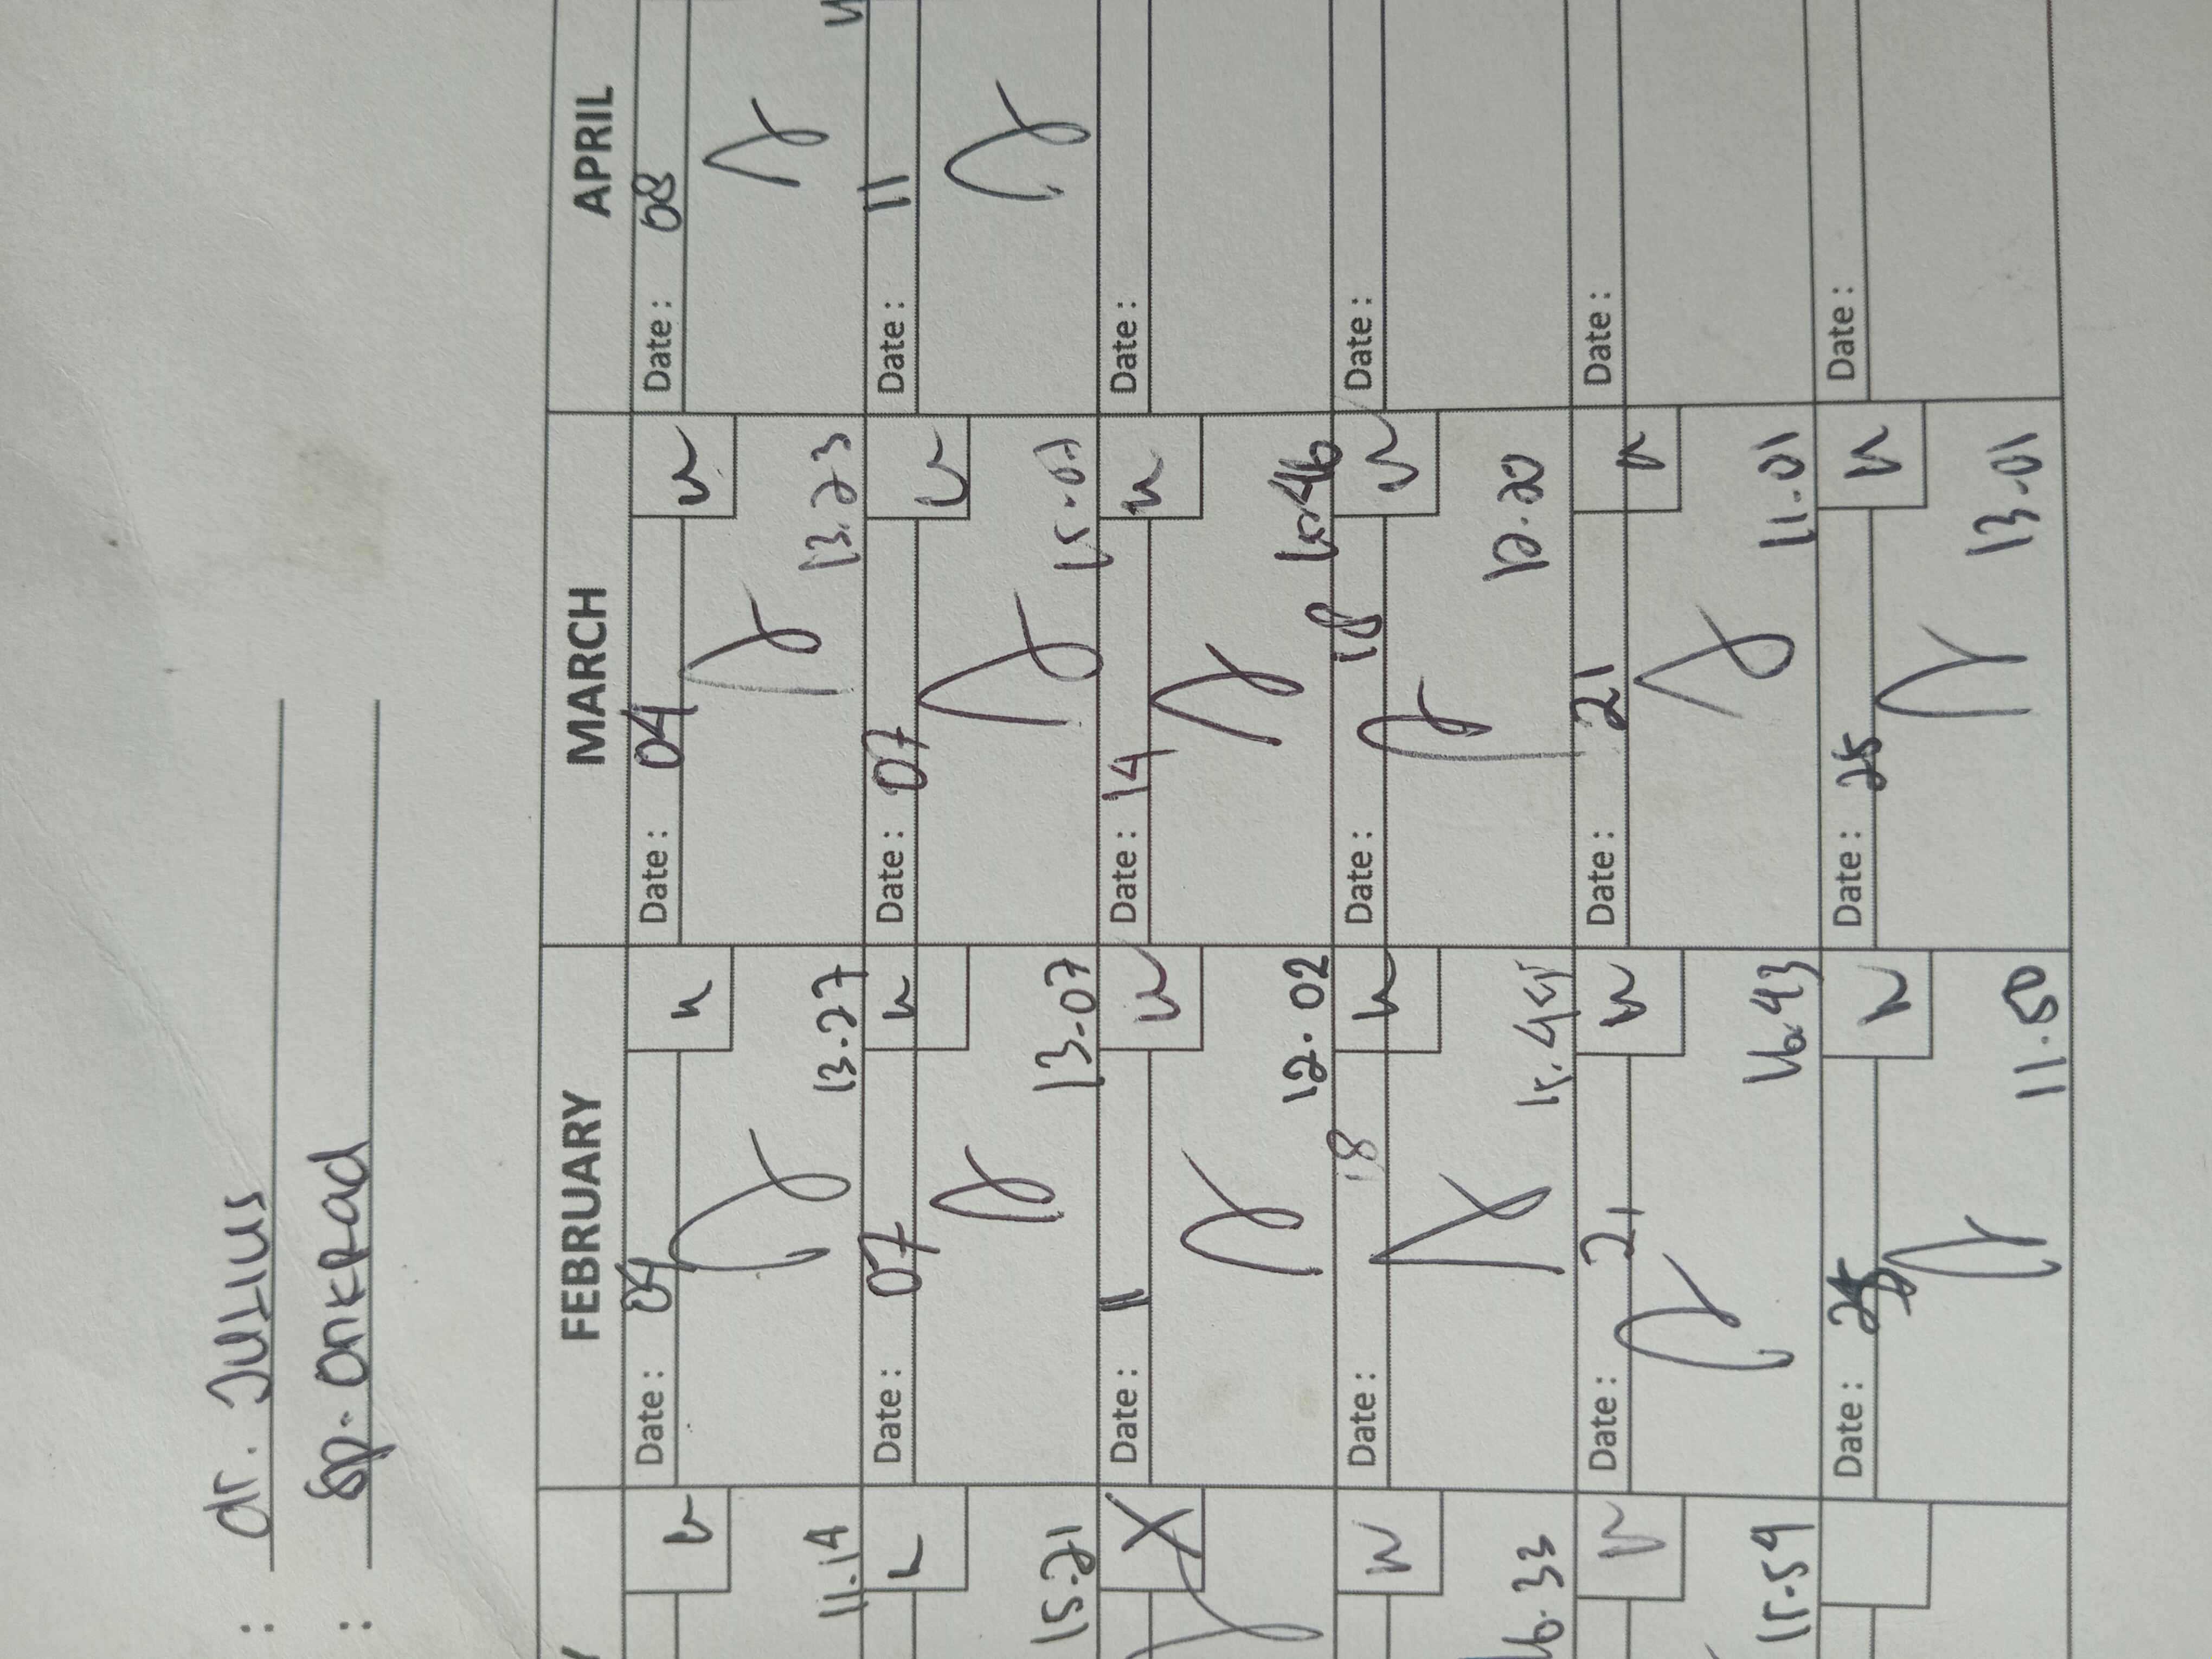 : dr. Julius
: Sp. Onkrad
FEBRUARY MARCH APRIL
Date: 04 Date: 04 Date: 08
11.14 13.27 13.23
Date: 07 Date: 07 Date: 11
15.21 13.07 15.07
Date: 11 Date: 14 Date:
X 12.02
Date: 18 Date: 18 Date:
16.33 12.20
Date: 21 Date: 21 Date:
15.59 16.43 11.01
Date: 25 Date: 25 Date:
11.50 13.01